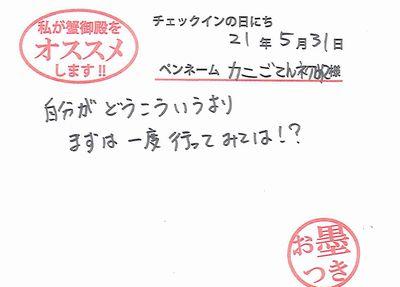 私が蟹御殿を
オススメ
します!!
チェックインの日にち
21年5月31日
ペンネーム カニごてん初心様
自分がどうこういうより
まずは一度行ってみては!?
お墨
つき